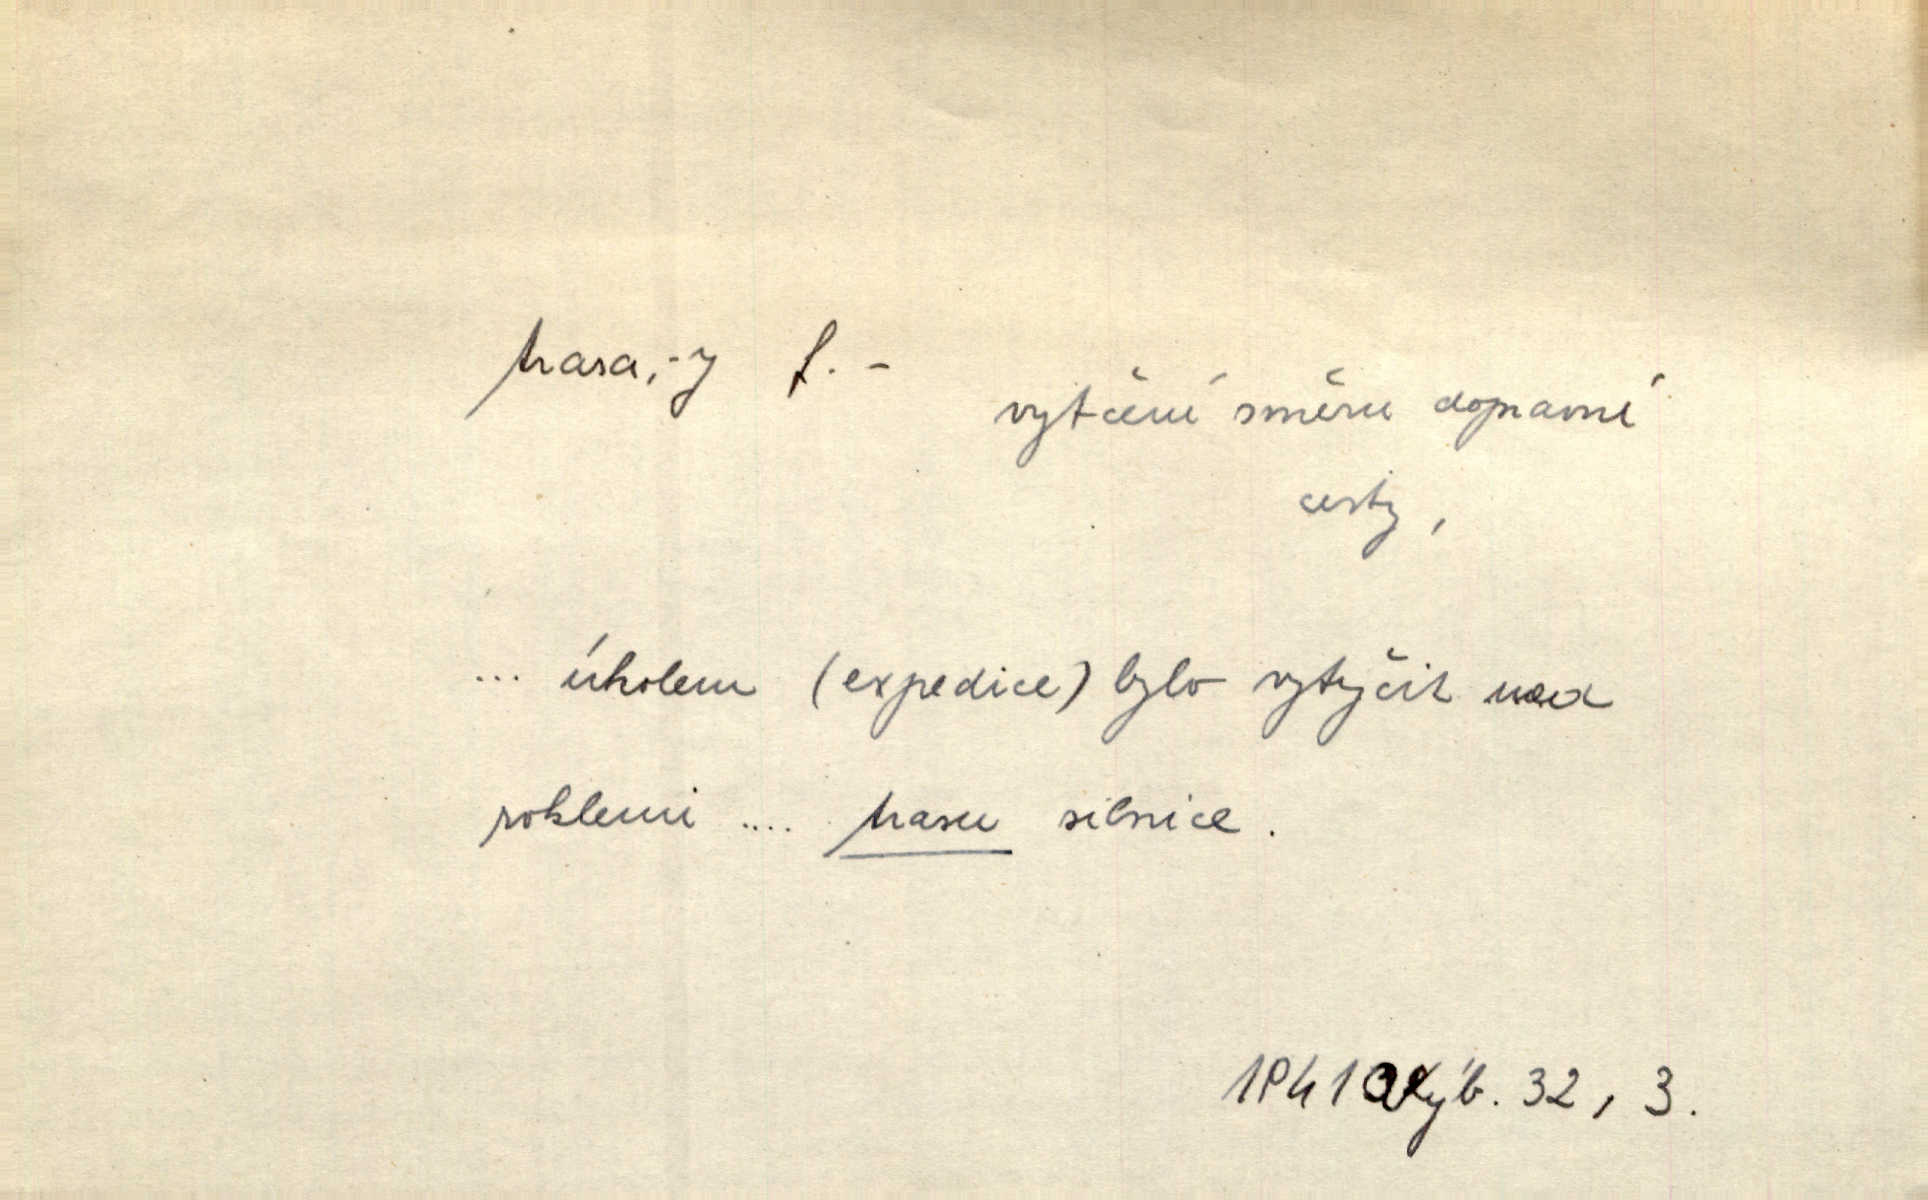 trasa, -y f. -
vytčení směru dopravní
cesty,
... úkolem (expedice) bylo vytyčit nad
roklemi .... trasu silnice.
Výb. 32, 3.